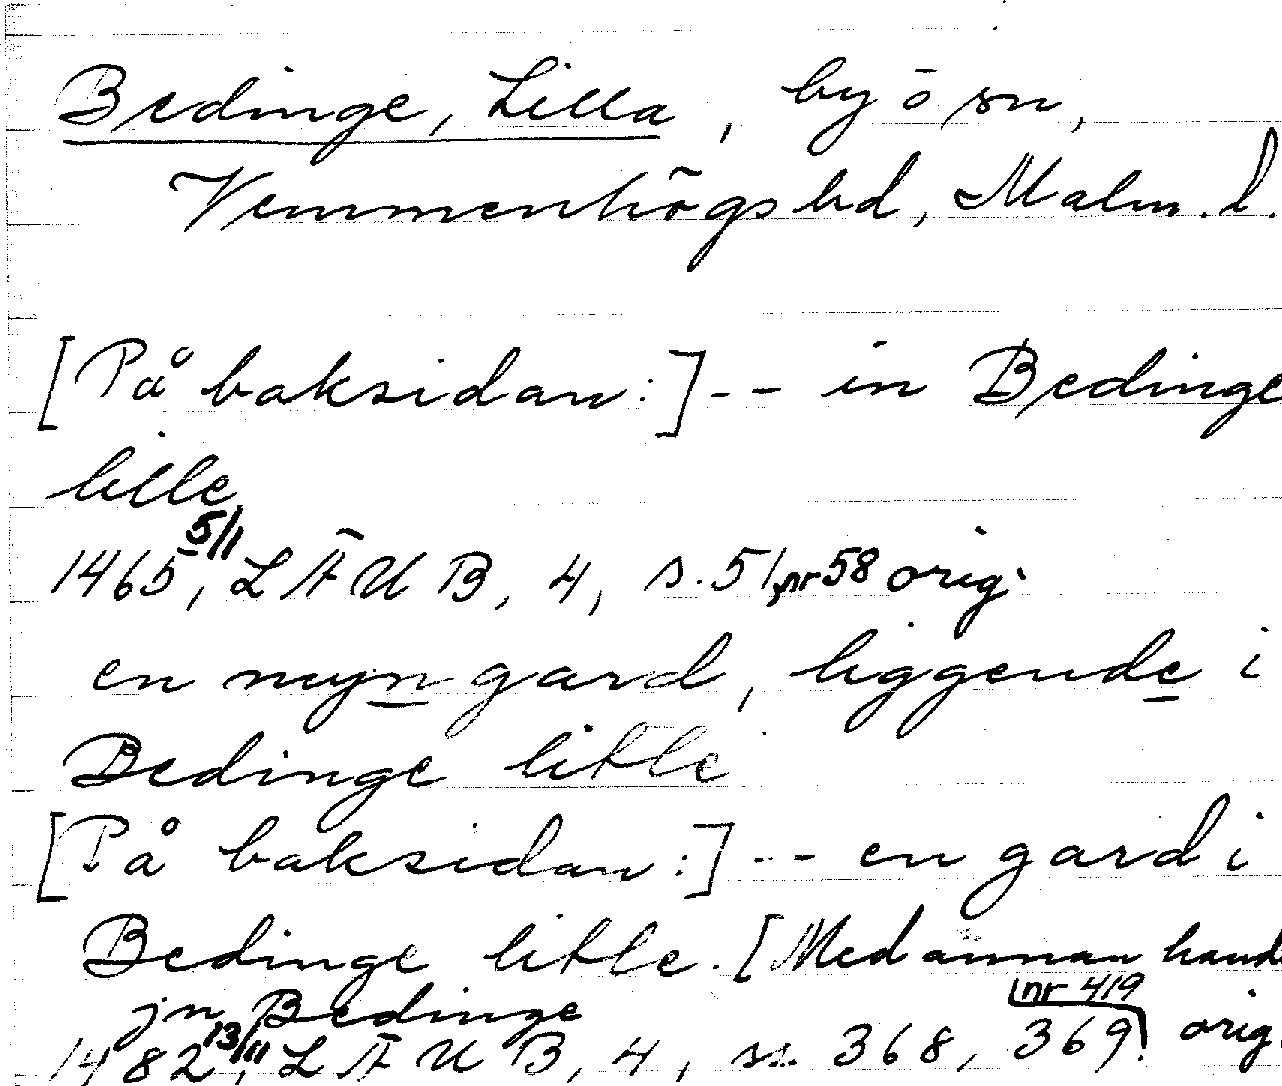 Bedinge, Lilla, by ō sn,
Vemmenhōgs hd, Malm. l.
[På baksidan:] -- in Bedinge
lille
1465 5/1, LÄUB, 4, s. 51, nr 58 orig.
en mnyn gard, liggende i
Bedinge litle
[På baksidan:] -- en gard i
Bedinge litle. [Med annan hand
jn Bedinge
1482 13/11, LÄUB, 4, ss. 368, 369, nr 419 orig.